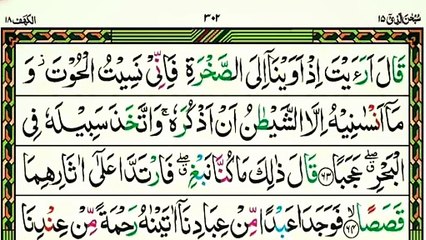 الكهف ١٨ ٣٠٢ سبحٰن الذی ١٥
قَالَ اَرَءَيْتَ اِذْ اَوَيْنَاۤ اِلَى الصَّخْرَةِ فَاِنِّىْ نَسِيْتُ الْحُوْتَ ؗ وَ
مَاۤ اَنْسٰىنِيْهُ اِلَّا الشَّيْطٰنُ اَنْ اَذْكُرَهٗ ۚ وَاتَّخَذَ سَبِيْلَهٗ فِى
الْبَحْرِ ۖ ق عَجَبًا ﴿٦٣﴾ قَالَ ذٰلِكَ مَا كُنَّا نَبْغِ ۖ ق فَارْتَدَّا عَلٰۤى اٰثَارِهِمَا
قَصَصًا ۙ ﴿٦٤﴾ فَوَجَدَا عَبْدًا مِّنْ عِبَادِنَاۤ اٰتَيْنٰهُ رَحْمَةً مِّنْ عِنْدِنَا